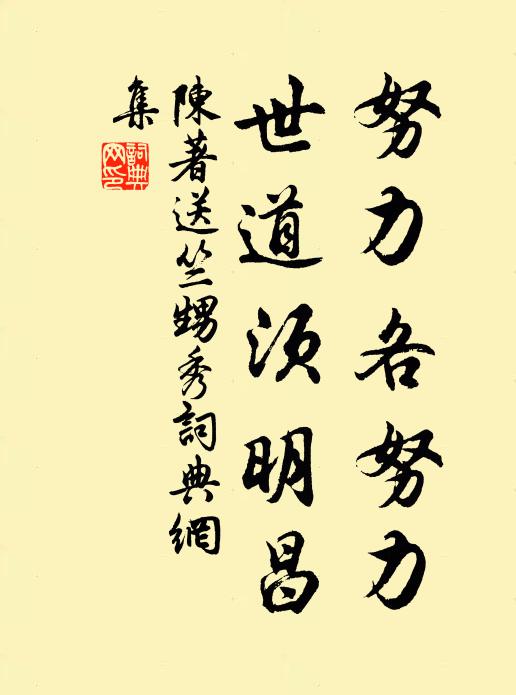 努力各努力
世道須明昌
陳著送竺甥秀詞典網
集
詞典網印